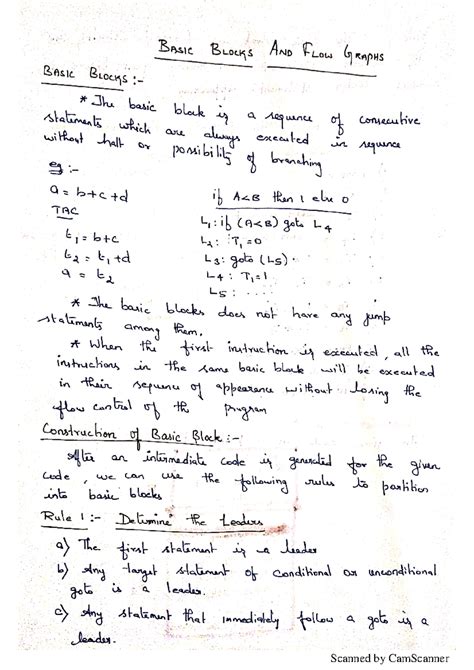 BASIC BLOCKS AND FLOW GRAPHS
BASIC BLOCKS :-
* The basic block is a sequence of consecutive
statements which are always executed in sequence
without halt or possibility of branching
eg :-
a = b+c+d
TAC
t1 = b+c
t2 = t1+d
a = t2
if A<B then 1 else 0
L1: if (A<B) goto L4
L2: T1=0
L3: goto (L5)
L4: T1=1
L5:
* The basic blocks does not have any jump
statements among them.
* When the first instruction is executed, all the
instructions in the same basic block will be executed
in their sequence of appearence without losing the
flow control of the program
Construction of Basic Block :-
After an intermediate code is generated for the given
code, we can use the following rules to partition
into basic blocks
Rule 1 :- Determine the Leaders
a) The first statement is a leader
b) Any target statement of conditional or unconditional
goto is a leader.
c) Any statement that immediately follow a goto is a
leader.
Scanned by CamScanner